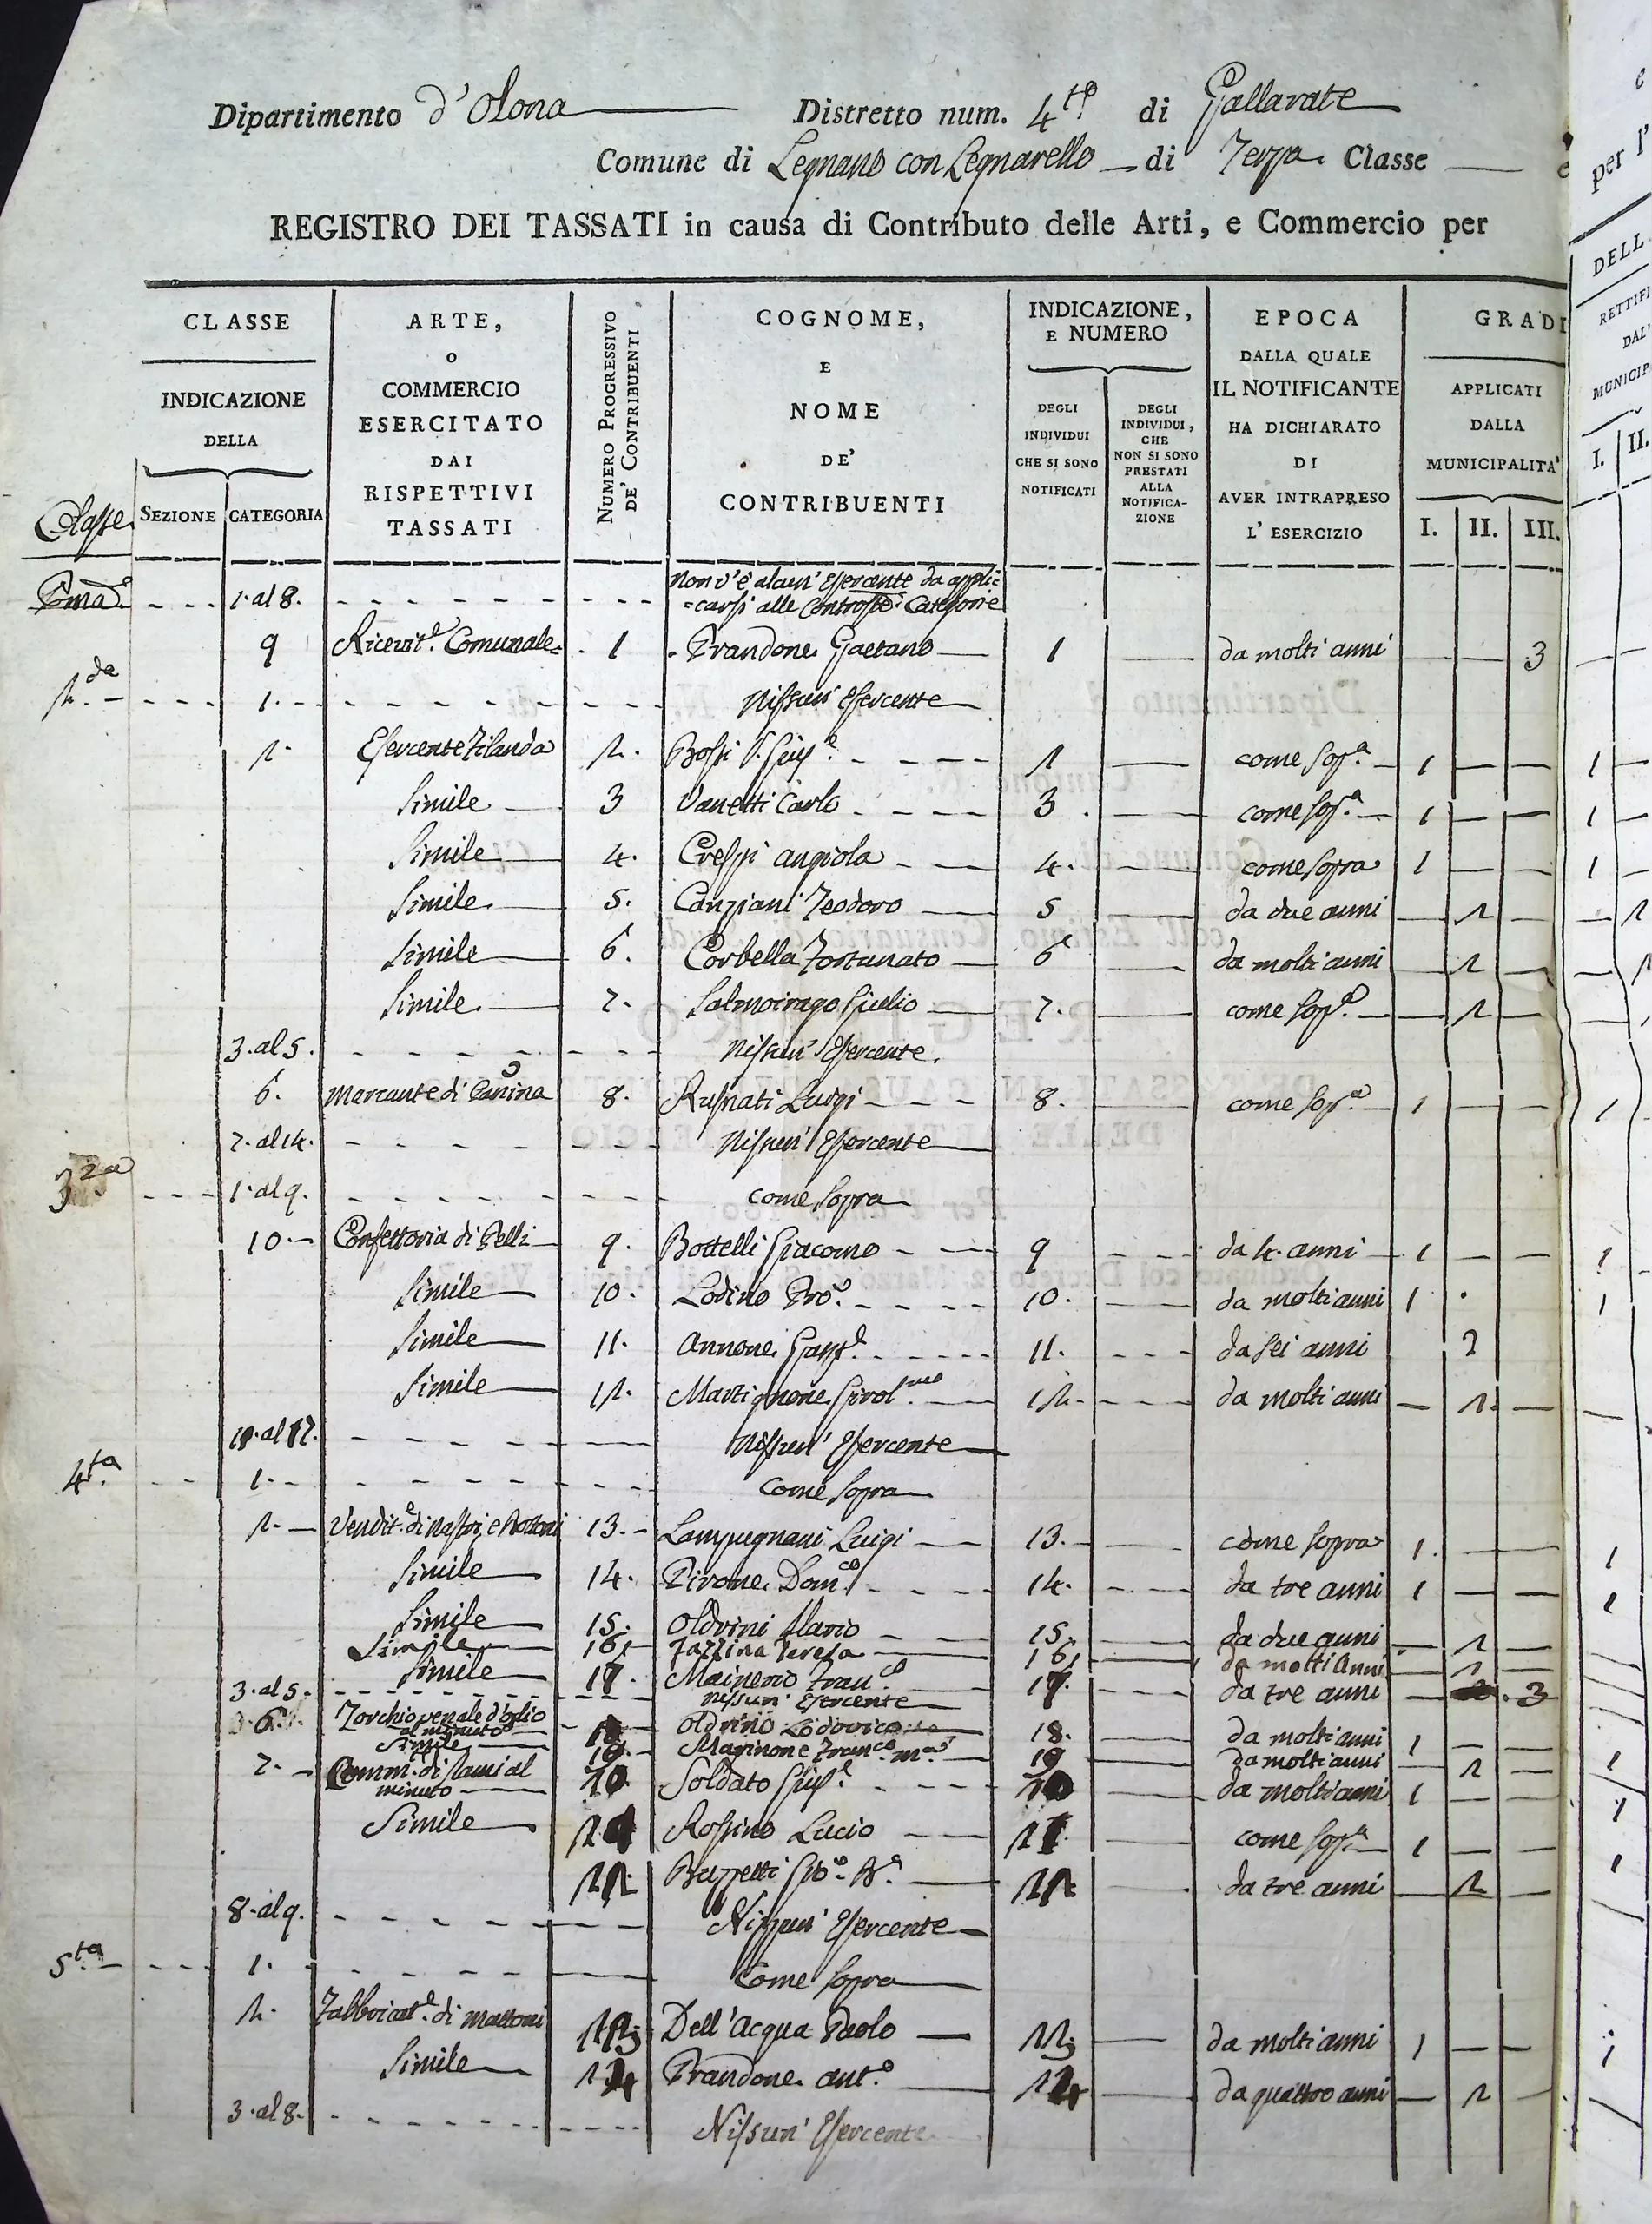 Dipartimento d'Olona Distretto num. 4to di Gallarate
Comune di Legnano con Legnarello di Terza Classe
REGISTRO DEI TASSATI in causa di Contributo delle Arti, e Commercio per
CLASSE
INDICAZIONE
DELLA
Classe SEZIONE CATEGORIA
ARTE,
O
COMMERCIO
ESERCITATO
DAI
RISPETTIVI
TASSATI
NUMERO PROGRESSIVO
DE' CONTRIBUENTI
COGNOME,
E
NOME
DE'
CONTRIBUENTI
INDICAZIONE,
E NUMERO
DEGLI
INDIVIDUI
CHE SI SONO
NOTIFICATI
DEGLI
INDIVIDUI,
CHE
NON SI SONO
PRESTATI
ALLA
NOTIFICA-
ZIONE
EPOCA
DALLA QUALE
IL NOTIFICANTE
HA DICHIARATO
DI
AVER INTRAPRESO
L' ESERCIZIO
GRADI
APPLICATI
DALLA
MUNICIPALITA'
I. II. III.
per l'
DELL
RETTIFI
DAL
MUNICIP
I. II.
Pma 1. al 8. Non v'è alcun' Esercente da appli=
=carsi alle Controste Categorie
9 Ricevit.e Comunale 1 Prandone Gaetano 1 da molti anni 3
2.da 1. Nissun' Esercente
2. Esercente Filanda 2. Bossi Giusp.e 2 come sop.a 1 1
Simile 3 Vanetti Carlo 3 come sop.a 1 1
Simile 4. Crespi Angiola 4. come sopra 1 1
Simile 5. Canziani Teodoro 5 da due anni 2 2
Simile 6. Corbella Fortunato 6 da molti anni 2
Simile 7. Salmoirago Giulio 7. come sop.a 2
3. al 5. Nissun' Esercente.
6. Mercante di Canina 8. Rusnati Luigi 8. come sop.a 1 1
7. al 14. Nissun' Esercente
3.za 1. al 9. come sopra
10. Confettoria di Pelli 9. Bottelli Giacomo 9 da 4. anni 1 1
Simile 10. Lodino 10. da molti anni 1 1
Simile 11. Annone Gasp.e 11. da sei anni 2
Simile 12. Martignone Girol.mo 12. da molti anni 2.
Nissun' Esercente
4.ta 1. Come sopra
2. Vendit.e di nastri, e Bottoni 13. Lampugnani Luigi 13. come sopra 1. 1
Simile 14. Pirone Dom.co 14. da tre anni 1 1
Simile 15. Oldrini Ilario 15. da due anni 2
Simile 16 Teresa 16 da molti Anni 2
Simile 17. Mainerio Fran.co 17. da tre anni 3
3. al 5. Nissun' Esercente
6. Torchio venale d'oglio Oldrino Lodovico 18. da molti anni 1
al minuto
Simile 19. Marinone Fran.co M.a 19 da molti anni 2
7. Comm. di stami al 20 Soldato Giusp.e 20 da molti anni 1
minuto
Simile 21 Rossino Lucio 21. come sop.a 1
22 Buzzetti Gio. B.a 22 da tre anni 2
8. al 9. Nissun' Esercente
5.ta 1. Come sopra
2. Fabbricat.e di mattoni 23 Dell'Acqua Paolo 23 da molti anni 1
Simile 24 Prandone Ant.o 24 da quattro anni 2
3. al 8. Nissun' Esercente